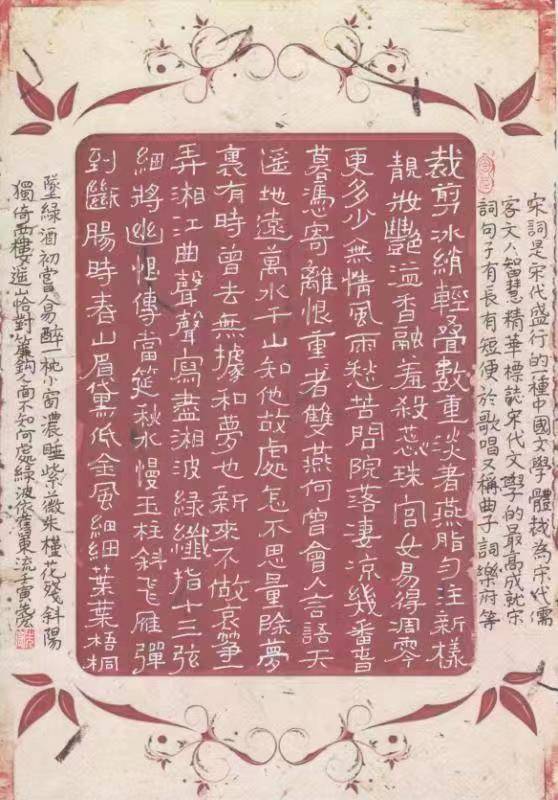 宋詞是宋代盛行的一種中國文學體裁為宋代儒
客文人智慧精華標誌宋代文學的最高成就宋
詞句子有長有短便於歌唱又稱曲子詞樂府等
裁剪冰綃輕疊數重淡着燕脂勻注新樣
靚妝豔溢香融羞殺蕊珠宮女易得凋零
更多少無情風雨愁苦問院落凄涼幾番春
暮憑寄離恨重者雙燕何曾會人言語天
遥地遠萬水千山知他故處怎不思量除夢
裏有時曾去無據和夢也新來不做哀箏一
弄湘江曲聲聲寫盡湘波綠纖指十三弦
細將幽恨傳當筵秋水慢玉柱斜飛雁彈
到斷腸時春山眉黛低金風細細葉葉梧桐
墜綠酒初嘗人易醉一枕小窗濃睡紫薇朱槿花殘斜陽
獨倚西樓遥山恰對簾鈎人面不知何處綠波依舊東流壬寅